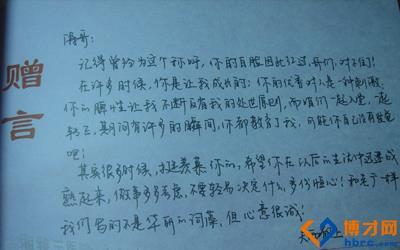 赠言
涛哥:
记得曾经为这个称呼,你的耳膜因此红过,哥们,对不住!
在许多时候,你是让我成长的:你的优秀对人是一种刺激,
你的脾性让我不断反省我的处世原则,而咱们一起人堂、一起
轻飞,其间有许多的瞬间,你都教了我,可能你自己没有发觉
吧!
其实很多时候,挺羡慕你的,希望你在以后的生活中迅速成
熟起来,做事多多考虑,不要轻易决定什么,多份恒心!和老广一样
我们写的不是华丽的词藻,但心意很诚!
博才网
hbrc.com